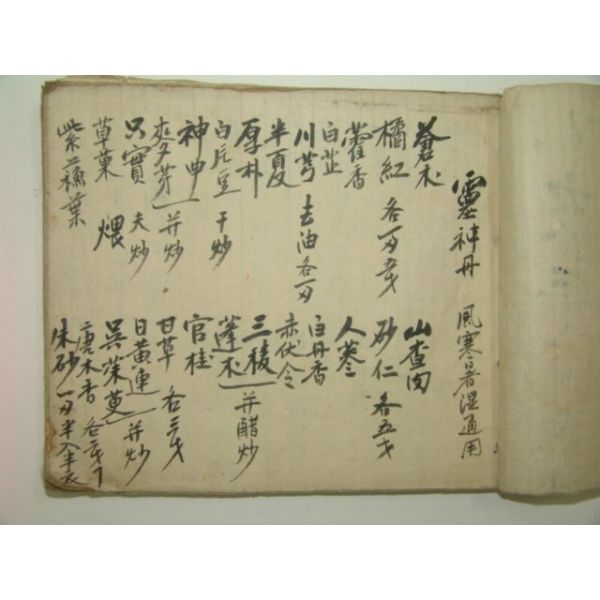 靈神丹 風寒暑湿通用
蒼朮 山查肉
橘紅 各一刃五戋 砂仁 各五戋
藿香 人蔘
白芷 白丹香
川芎 去油各一刃 赤伏令
半夏 三稜
厚朴 蓬朮 并醋炒
白片豆 干炒 官桂
神曲 甘草 各三戋
麥芽 并炒 日黃連
只實 夫炒 吳茱萸 并炒
草菓 煨 唐木香 各二戋
紫蘇葉 朱砂 一刃半入半衣